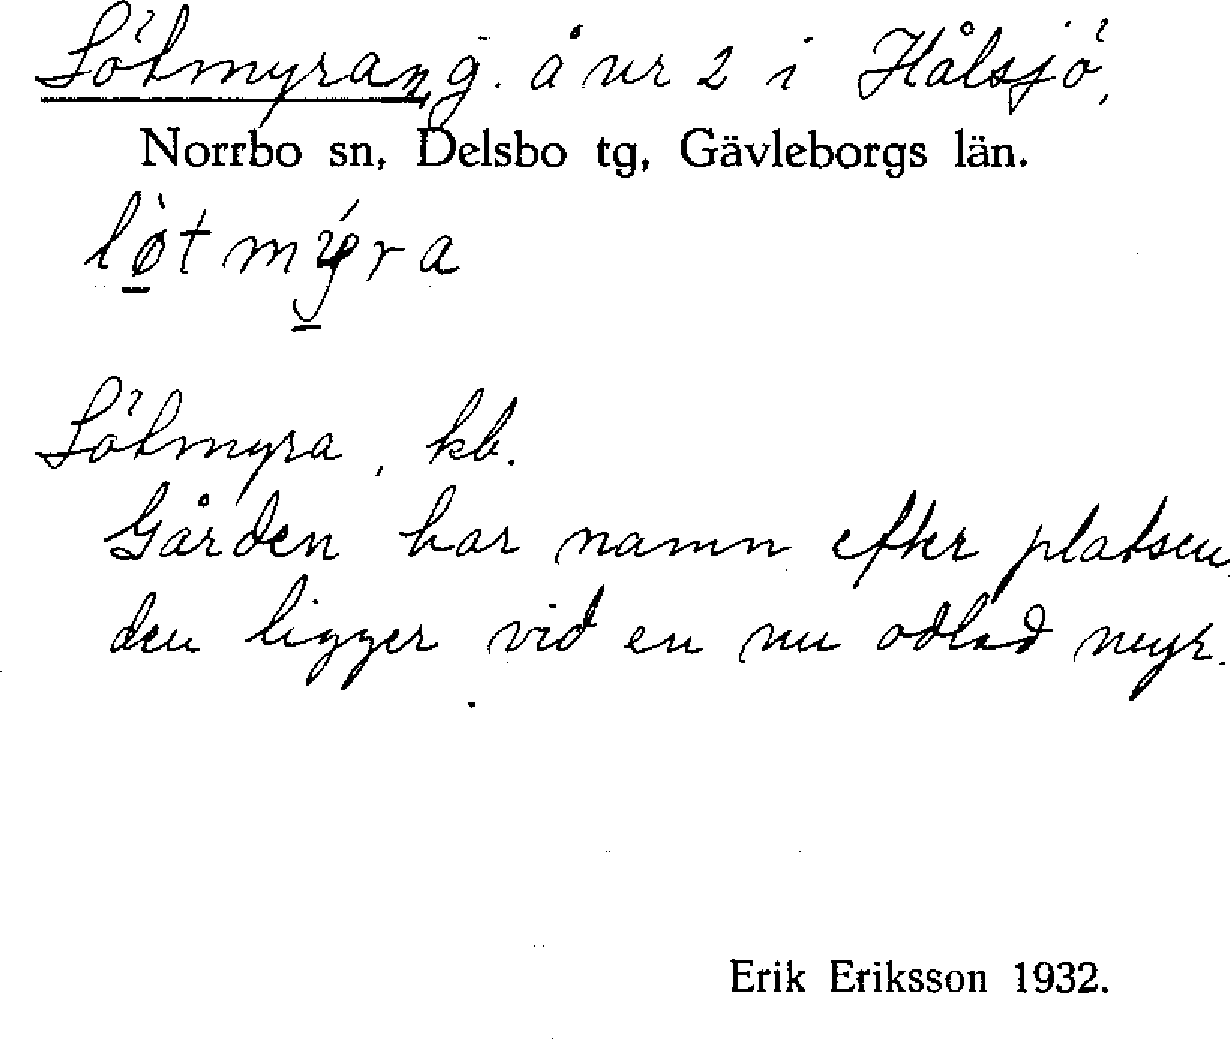 Sötmyran, g. å nr 2 i Hålsjö,
Norrbo sn, Delsbo tg, Gävleborgs län.
Sötmyra, kb.
Gården har namn efter platsen,
den ligger vid en nu odlad myr.
Erik Eriksson 1932.